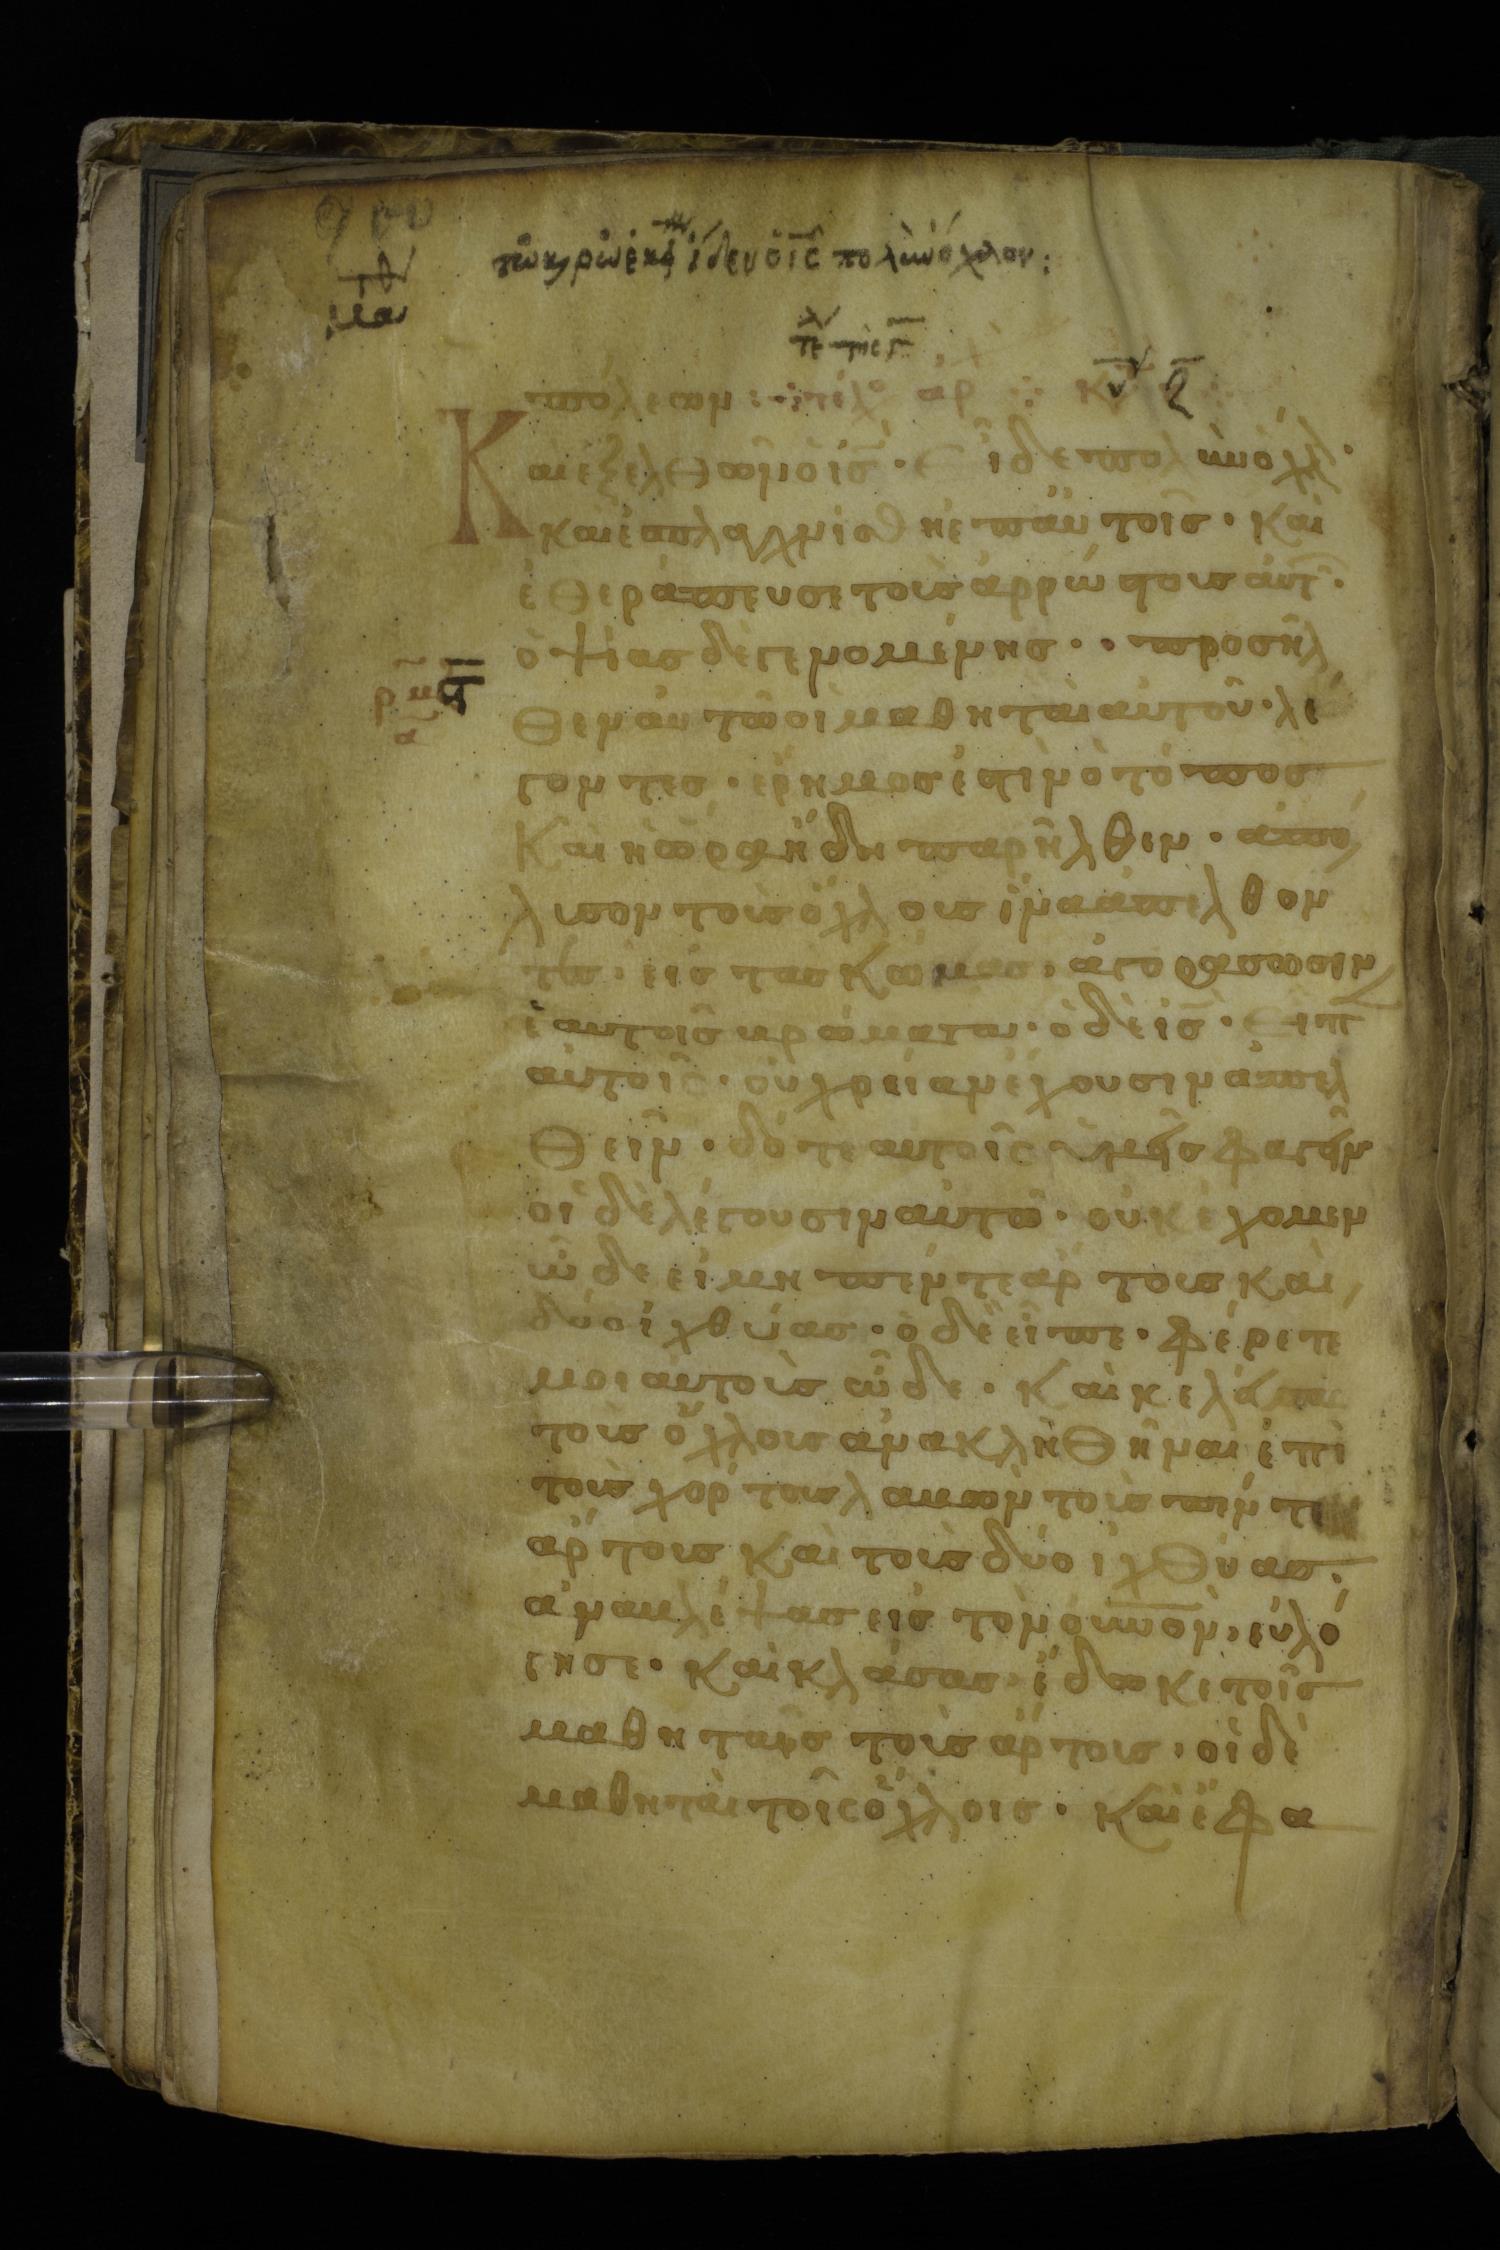 τῶ κρῶ ἐκ ἰδεν ὁ ις πολὺν ὄχλον:
πόλεων
Και ἐξελθὼν ὁ ις · εἶδε πολὺν ὄχλ ·
και ἐσπλαγχνίσθη ἐπ αὐτοῖς · και
ἐθεράπευσε τοὺς ἀρρώστους αὐτ ·
ὀψίας δὲ γενομένης · · προσῆλ
θεν αὐτῶ οἱ μαθηται αὐτοῦ · λέ
γοντες · ἔρημος ἐστιν ὁ τόπος
και ἡ ὥρα ἤδη παρῆλθεν · ἀπό
λυσον τοὺς ὄχλους ἵνα ἀπελθόν
τες · εἰς τας κώμας · ἀγορασωσιν
ἑαυτοῖς βρώματα · ὁ δὲ ις · εἶπ
αὐτοῖς · οὐ χρείαν ἔχουσιν ἀπελ
θεῖν · δότε αυτοῖς ὑμεῖς φαγεῖν
οἱ δὲ λέγουσιν αὐτῶ · οὐκ ἔχομεν
ὧδε εἰ μη πέντε ἄρτους και
δύο ἰχθύας · ὁ δὲ εἶπε · φέρετε
μοι αὐτοὺς ὧδε · και κελεύσας
τοὺς ὄχλους ἀνακληθῆναι ἐπὶ
τοὺς χόρτους λαβὼν τοὺς πέντε
ἄρτους και τοὺς δύο ἰχθύας ·
ἀναβλέψας εἰς τὸν ουνον, εὐλό
γησε · και κλάσας ἔδωκε τοῖς
μαθηταῖς τοὺς ἄρτους · οἱ δὲ
μαθηται τοῖς ὄχλοις · και ἔφα